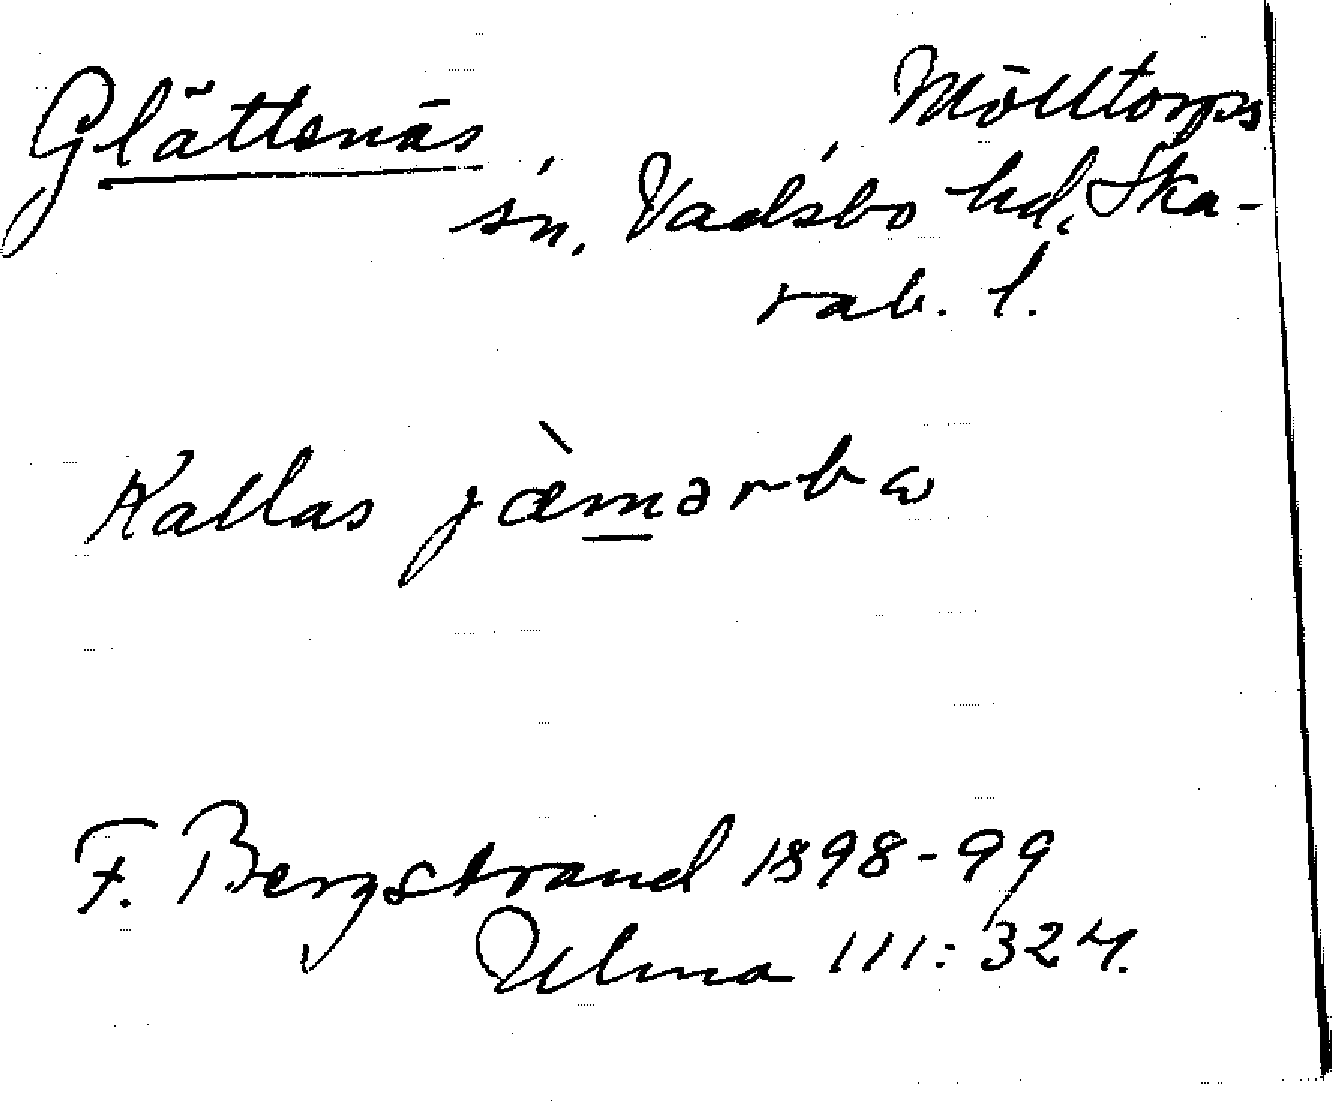 Glättenäs Mölltorps
sn. Vadsbo hd, Ska-
rab. l.
Kallas jæ̀mərba
F. Bergstrand 1898-99
Ulma 111:324.